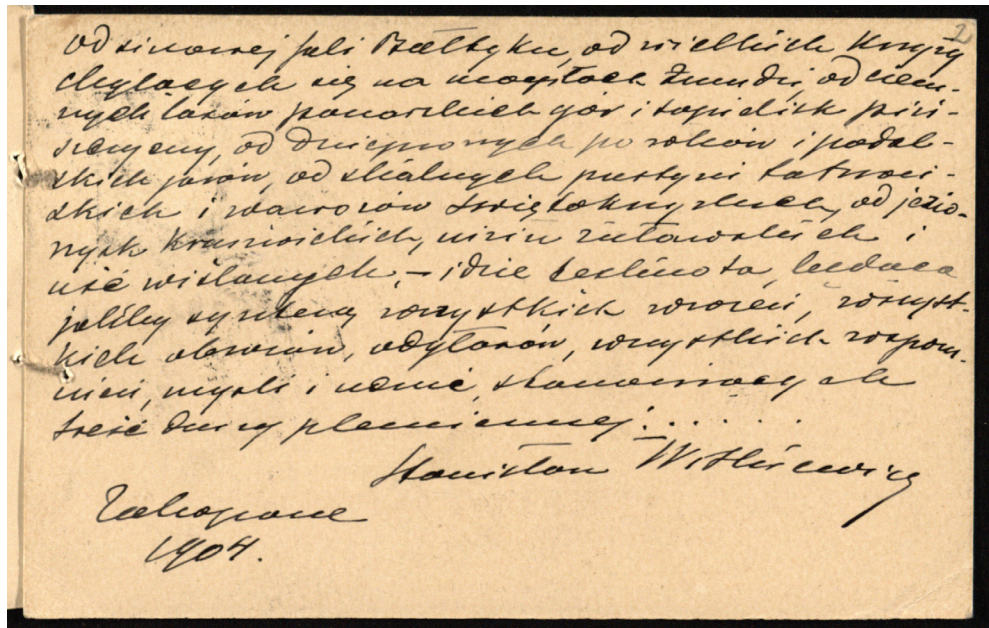 2
od sinawej fali Bałtyku, od wielkich krzyży
chylących się na mogiłach Żmudzi, od ciem-
nych lasów ponarskich gór i topielisk piń-
szczyzny, od dnieprowych porohów i podol-
skich jarów, od skalnych pustyń tatrzań-
skich i wąwozów świętokrzyskich, od jezio-
rysk kruszwickich, nizin żuławskich i
ujść wiślanych, – idzie tęsknota, będąca
jakby syntezą wszystkich wrażeń, wszyst-
kich obrazów, odgłosów, wszystkich wspom-
nień, myśli i uczuć, stanowiących
treść duszy plemiennej: . . . . .
Stanisław Witkiewicz
Zakopane
1904.